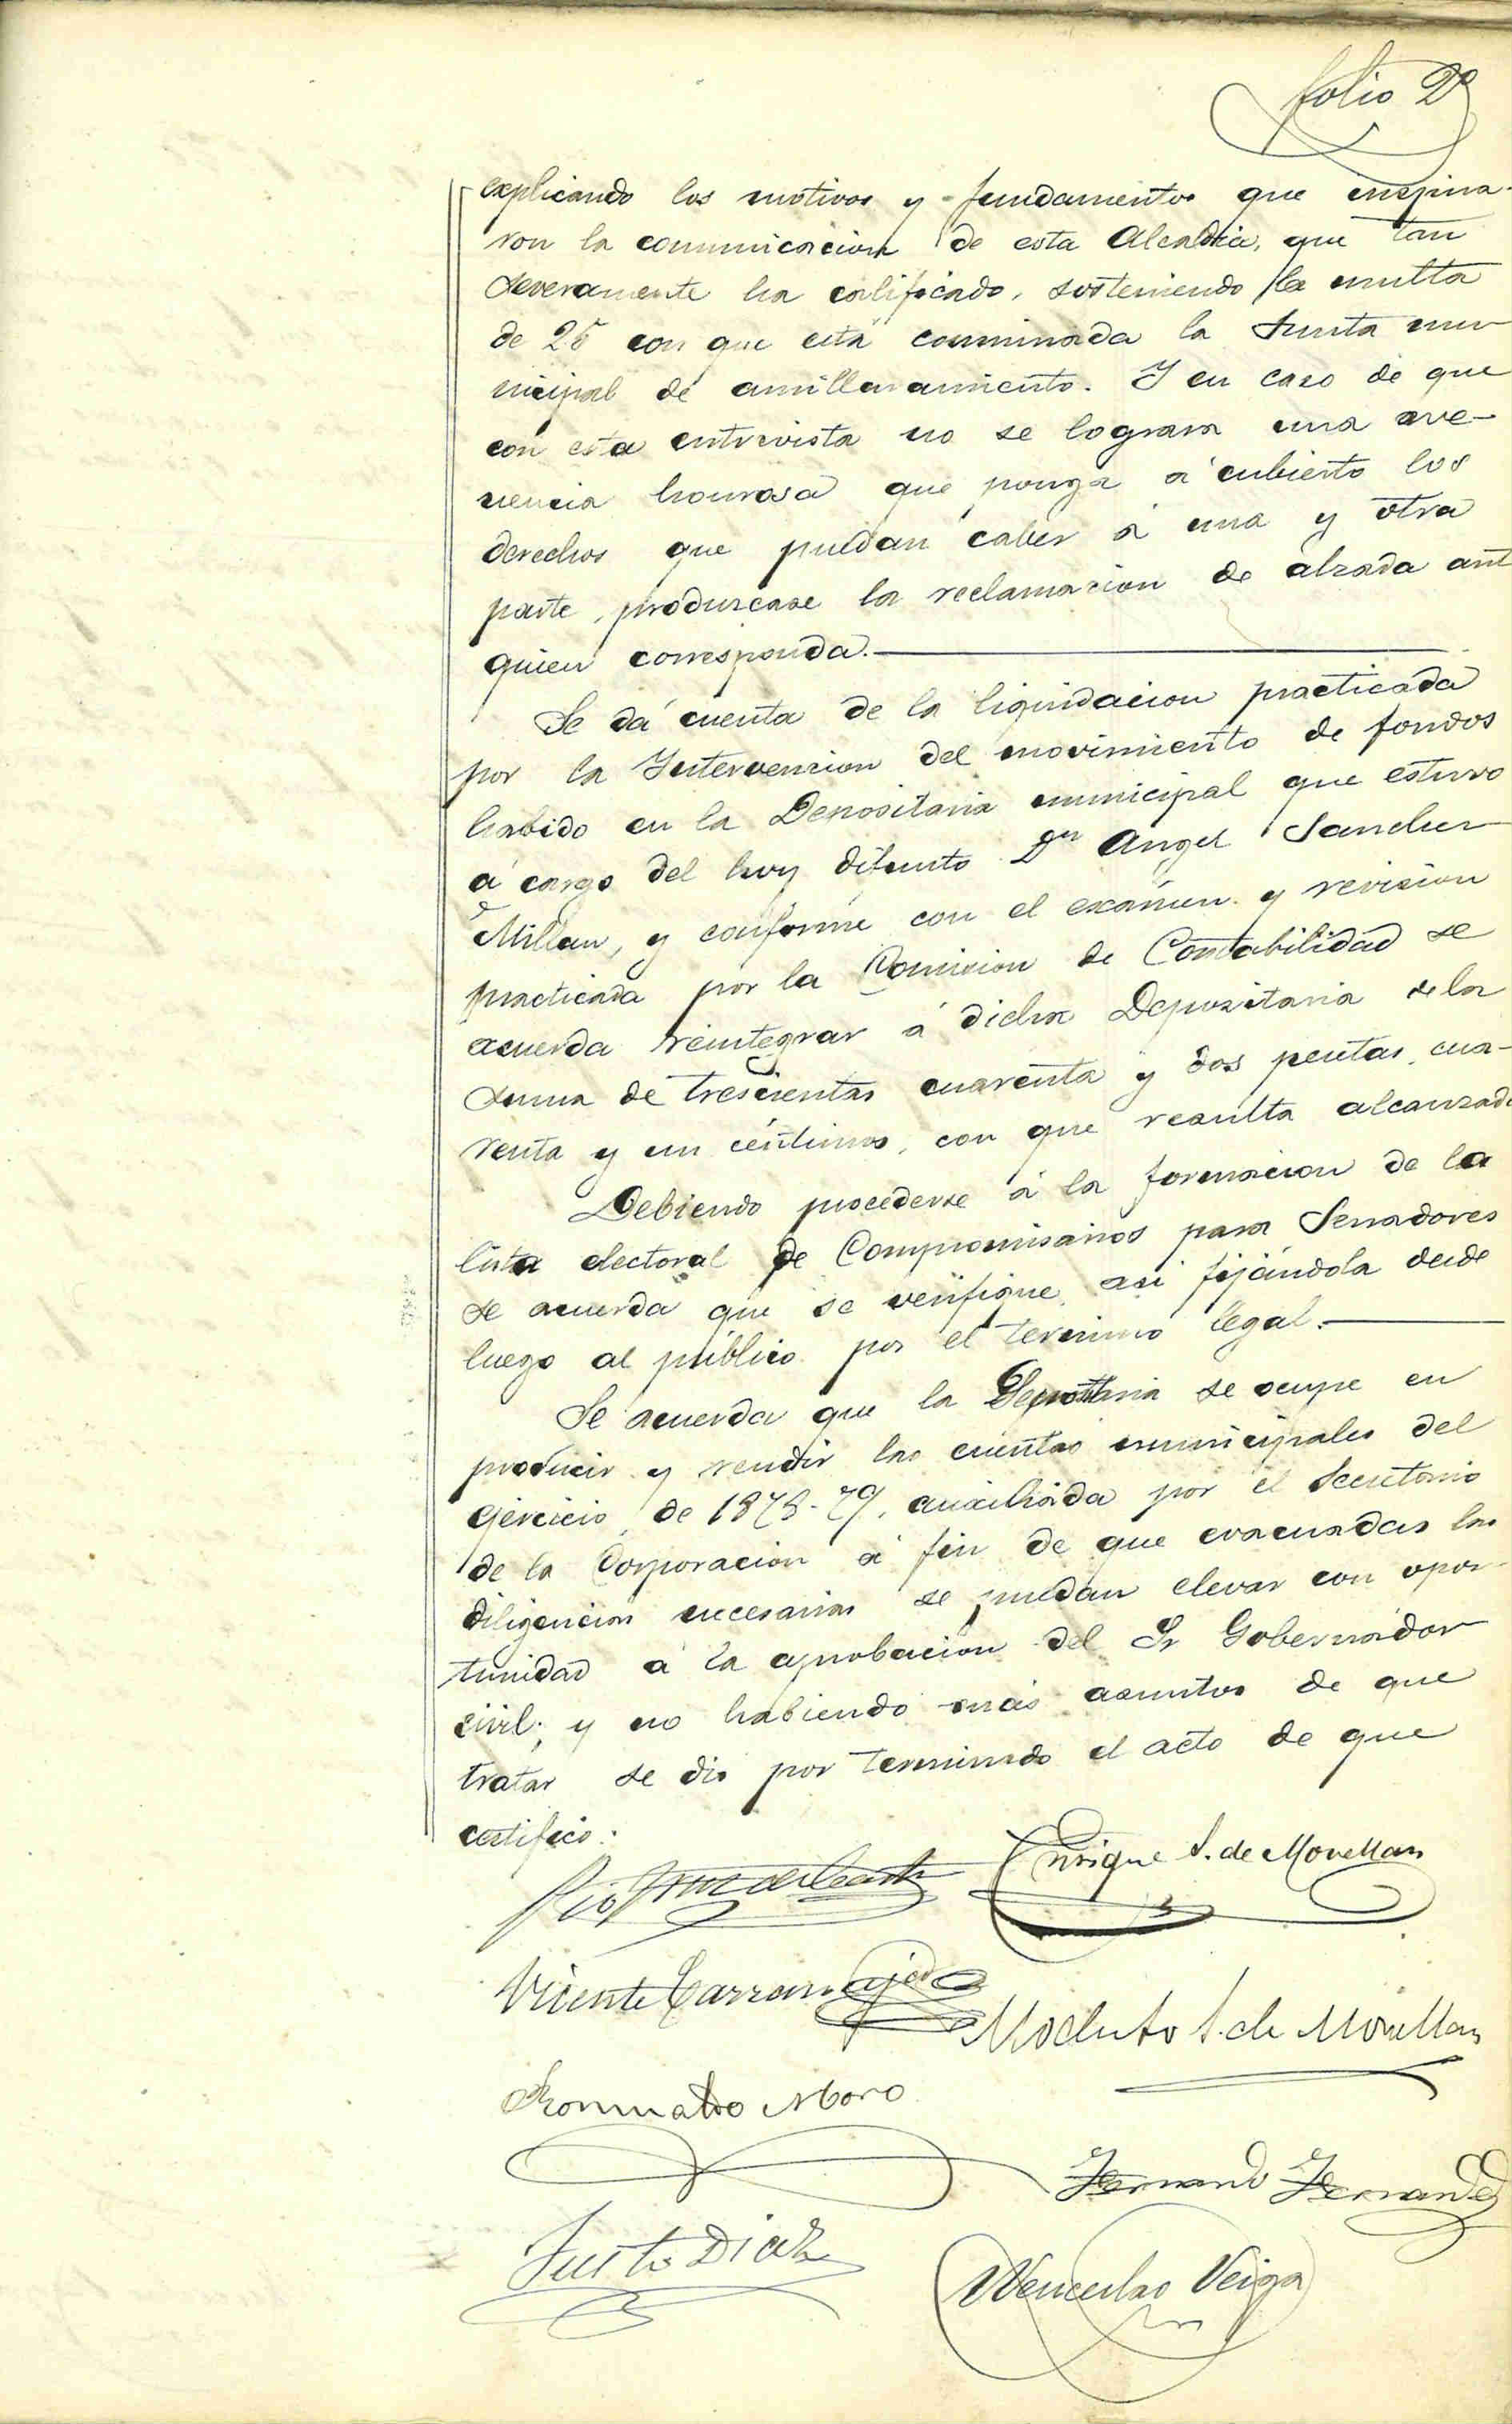 folio 2º
explicando los motivos y fundamentos que inspira-
ron la comunicacion de esta Alcaldia, que tan
severamente ha calificado, sosteniendo la multa
de 25 con que está conminada la Junta mu-
nicipal de amillaramiento. Y en caso de que
con esta entrevista no se lograra una ave-
nencia honrosa que ponga á cubierto los
derechos que puedan caber á una y otra
parte, produzcase la reclamacion de alzada ant
quien corresponda.
Se dá cuenta de la liquidacion practicada
por la Intervencion del movimiento de fondos
habido en la Depositaria municipal que estuvo
á cargo del hoy difunto Dn Angel Sanchez
Millan, y conforme con el exámen y revision
practicada por la Comision de Contabilidad se
acuerda reintegrar á dicha Depositaria de la
suma de trescientas cuarenta y dos pesetas, cua-
renta y un céntimos, con que resulta alcanzad
Debiendo procederse á la formacion de la
lista electoral de Compromisarios para Senadores
se acuerda que se verifique asi fijándola desde
luego al público por el termino legal.
Se acuerda que la se ocupe en
producir y rendir las cuentas municipales del
ejercicio de 1878-79, auxiliada por el Secretario
de la Corporacion á fin de que evacuadas las
diligencias necesarias se puedan elevar con opor-
tunidad á la aprobacion del Sr Gobernador
civil; y no habiendo más asuntos de que
tratar se dio por terminado el acto de que
certifico.
Enrique S. de Movellan
Vicente
Modesto S. de Movellan
Romualdo Moro
Fernando Fernandez
Justo Diaz
Wenceslao Veiga